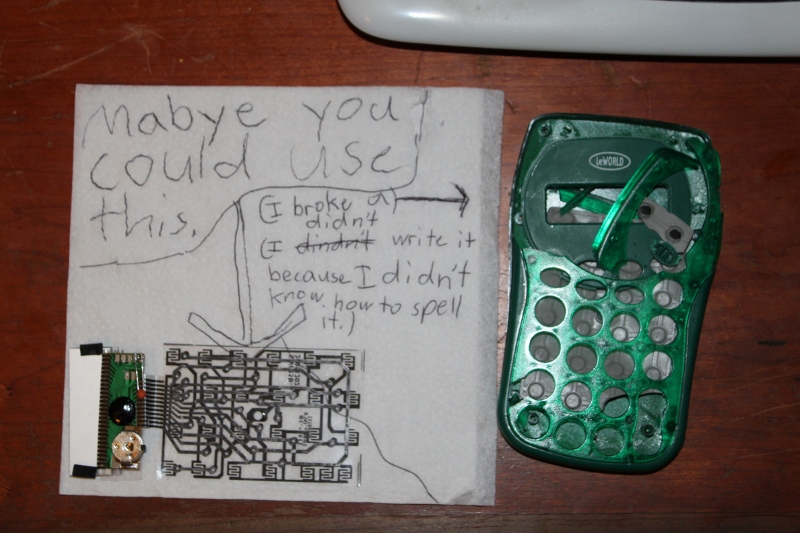 Mabye you
could use
this.
(I broke a)
didn't
(I dindn't write it
because I didn't
know how to spell
it.)
LeWORLD